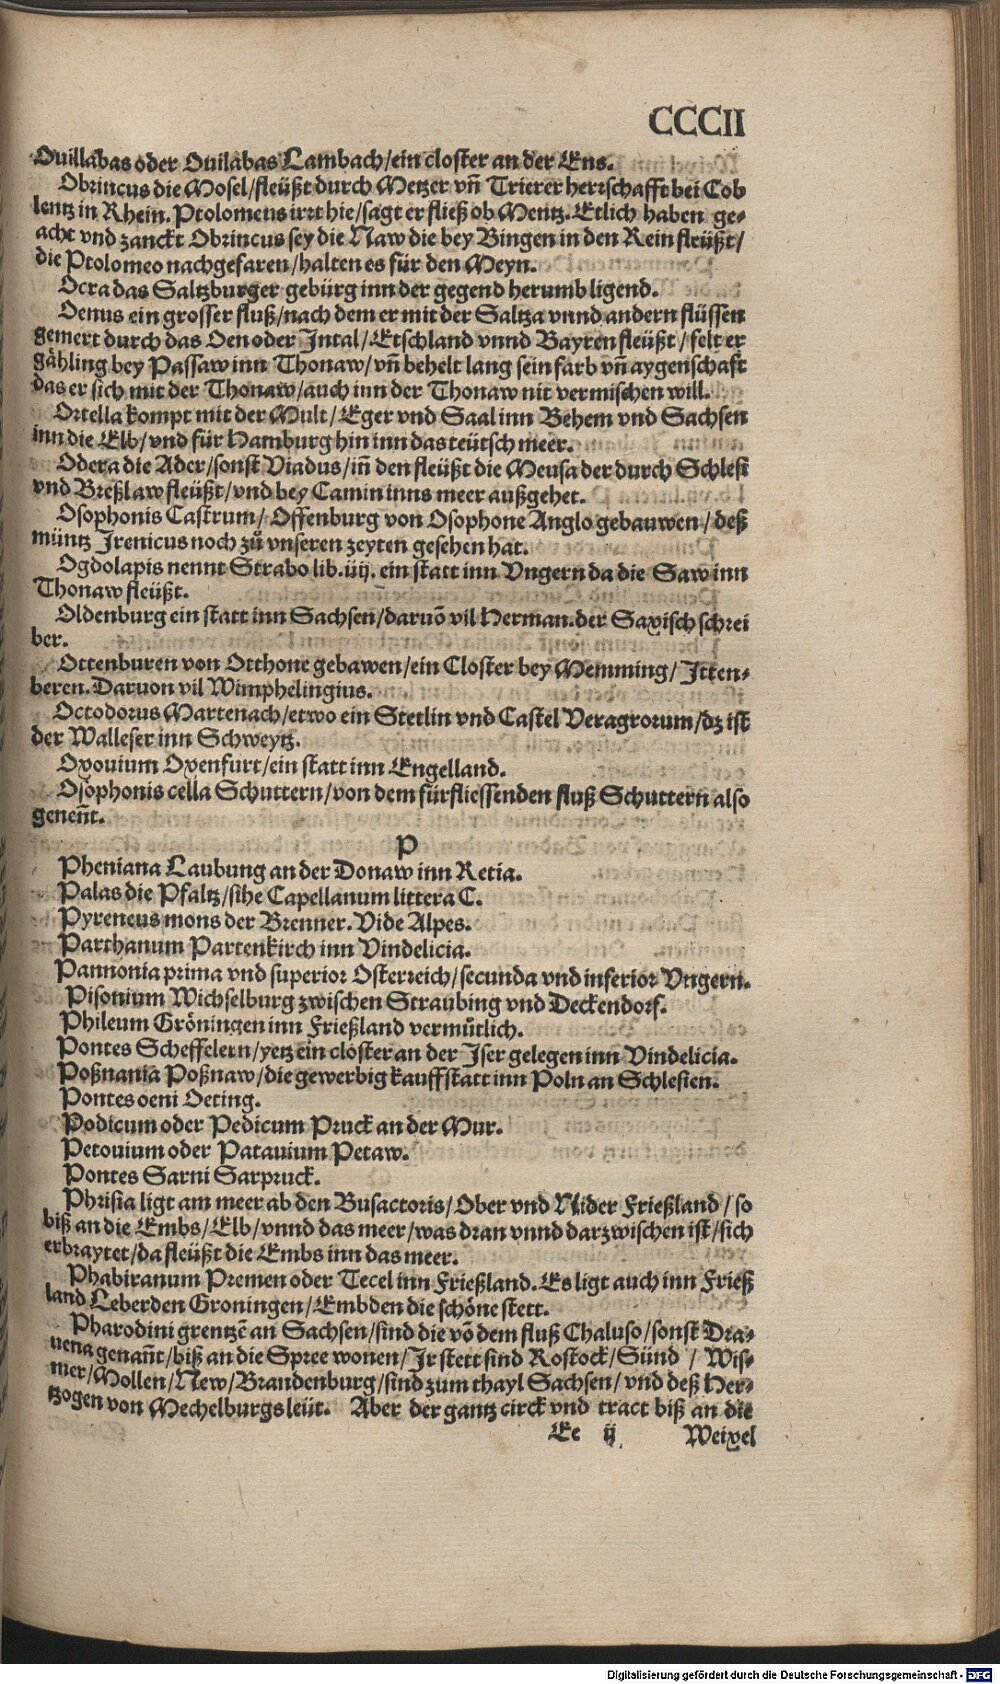 CCCII
Ouillabas oder Ouilabas Lambach/ein closter an der Ens.
Obrincus die Mosel/fleüßt durch Metzer vñ Trierer herrschafft bei Cob
lentz in Rhein. Ptolomeus irrt hie/sagt er fließ ob Mentz. Etlich haben ge-
acht vnd zanckt Obrincus sey die Naw die bey Bingen in den Rein fleüßt/
die Ptolomeo nachgefaren/halten es für den Meyn.
Ocra das Saltzburger gebürg inn der gegend herumb ligend.
Oenus ein grosser fluß/nach dem er mit der Saltza vnnd andern flüssen
gemert durch das Oen oder Intal/Etschland vnnd Bayren fleüßt/felt er
gähling bey Passaw inn Thonaw/vñ behelt lang sein farb vñ aygenschaft
das er sich mit der Thonaw/auch inn der Thonaw nit vermischen will.
Ortella kompt mit der Mult/Eger vnd Saal inn Behem vnd Sachsen
inn die Elb/vnd für Hamburg hin inn das teütsch meer.
Odera die Ader/sonst Viadus/iñ den fleüßt die Meusa der durch Schlesi
vnd Breßlaw fleüßt/vnd bey Camin inns meer außgehet.
Osophonis Castrum/Offenburg von Osophone Anglo gebauwen/deß
müntz Irenicus noch zů vnseren zeyten gesehen hat.
Ogdolapis nennt Strabo lib.iiij. ein statt inn Vngern da die Saw inn
Thonaw fleüßt.
Oldenburg ein statt inn Sachsen/daruõ vil Herman.der Saxisch schrei
ber.
Ottenburen von Otthone gebawen/ein Closter bey Memming/Itten-
beren. Daruon vil Wimphelingius.
Octodorus Martenach/etwo ein Stetlin vnd Castel Veragrorum/dz ist
der Walleser inn Schweytz.
Oxouium Oxenfurt/ein statt inn Engelland.
Osophonis cella Schuttern/von dem fürfliessenden fluß Schuttern also
geneñt.
P
Pheniana Laubung an der Donaw inn Retia.
Palas die Pfaltz/sihe Capellanum littera C.
Pyreneus mons der Brenner. Vide Alpes.
Parthanum Partenkirch inn Vindelicia.
Pannonia prima vnd superior Osterreich/secunda vnd inferior Vngern.
Pisonium Wichselburg zwischen Straubing vnd Deckendorf.
Phileum Gröningen inn Frießland vermůtlich.
Pontes Scheffelern/yetz ein closter an der Iser gelegen inn Vindelicia.
Poßnania Poßnaw/die gewerbig kauffstatt inn Poln an Schlesien.
Pontes oeni Oeting.
Podicum oder Pedicum Pruck an der Mur.
Petouium oder Patauium Petaw.
Pontes Sarni Sarpruck.
Phrisia ligt am meer ab den Busactoris/Ober vnd Nider Frießland/so
biß an die Embs/Elb/vnnd das meer/was dran vnnd darzwischen ist/sich
erbraytet/da fleüßt die Embs inn das meer.
Phabiranum Premen oder Tecel inn Frießland. Es ligt auch inn Frieß
land Leberden Groningen/Embden die schöne stett.
Pharodini grentzẽ an Sachsen/sind die võ dem fluß Chaluso/sonst Dra-
uena genañt/biß an die Spree wonen/Ir stett sind Rostock/Sünd/Wis-
mer/Mollen/New/Brandenburg/sind zum thayl Sachsen/vnd deß Her-
tzogen von Mechelburgs leüt. Aber der gantz circk vnd tract biß an die
Ee ij Weixel
Digitalisierung gefördert durch die Deutsche Forschungsgemeinschaft - DFG